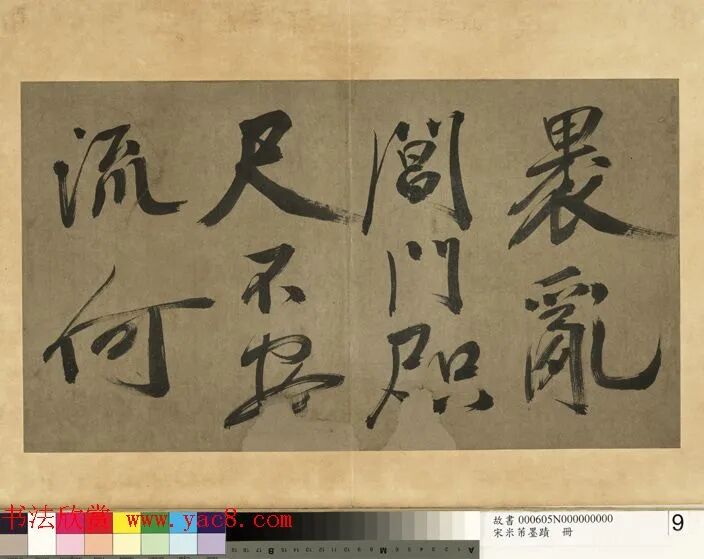 裹亂
閶門咫
尺不安
流何
书法欣赏 www.yac8.com
故書 000605N000000000
宋米芾墨蹟 冊
9